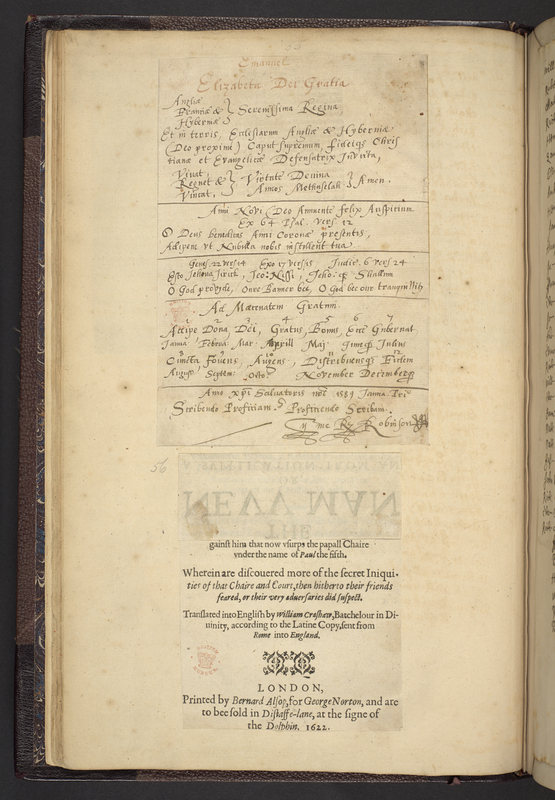 Emanuel
Elizabeta Dei Gratia
Angliæ
Franciæ & } Serenissima Regina
Hyberniæ
Et in terris, Ecclesiarum Angliæ & Hyberniæ
(Deo proximè) Caput supremum, fideiqȝ Chris
tianæ et Evangelicæ Defensatrix Invicta,
Vivat
Regnet & } Virtute Devina } Amen.
Vincat. Annos Methuselah
Anni Novi (Deo Annuente felix Auspitium
Ex 64 Psal. vers. 12
O Deus benedictas Anni Coronæ presentis,
Adipem vt Nubila nobis instillent tua.
Genes 22 vers 14 Exo 17 versis Judic. 6 vers 24
Esto Jehova Jireh, Jeo: Nissi, Jeho: qȝ Shallum
O God provyde, oure Banner bee, O God bee our tranquillity
Ad Mæcenatem Gratum.
1 2 3 4 5 6 7
Accipe Dona Dei, Gratus, Bonus, Ecce Gubernat
Janua Februa: Mar: Aprill Maj: Juneqȝ Julius
Cuncta Fovens, Auxens, Distribuensqȝ Eidem
August Septem: Octo: November Decemberqȝ
Anno xpi Salvatoris nri 1589 Janua. Pri
Scribendo Proficiam. Proficiendo Scribam.
By me Ry Robinson
56
A SVPPLICATION FROM AN
OR
NEVV MAN
THE
gainst him that now vsurps the papall Chaire
vnder the name of Paul the fifth.
Wherein are discouered more of the secret Iniqui-
ties of that Chaire and Court, then hitherto their friends
feared, or their very aduersaries did suspect.
Translated into English by William Crashaw, Batchelour in Di-
uinity, according to the Latine Copy, sent from
Rome into England.
LONDON,
Printed by Bernard Alsop, for George Norton, and are
to bee sold in Distaffe-lane, at the signe of
the Dolphin. 1622.